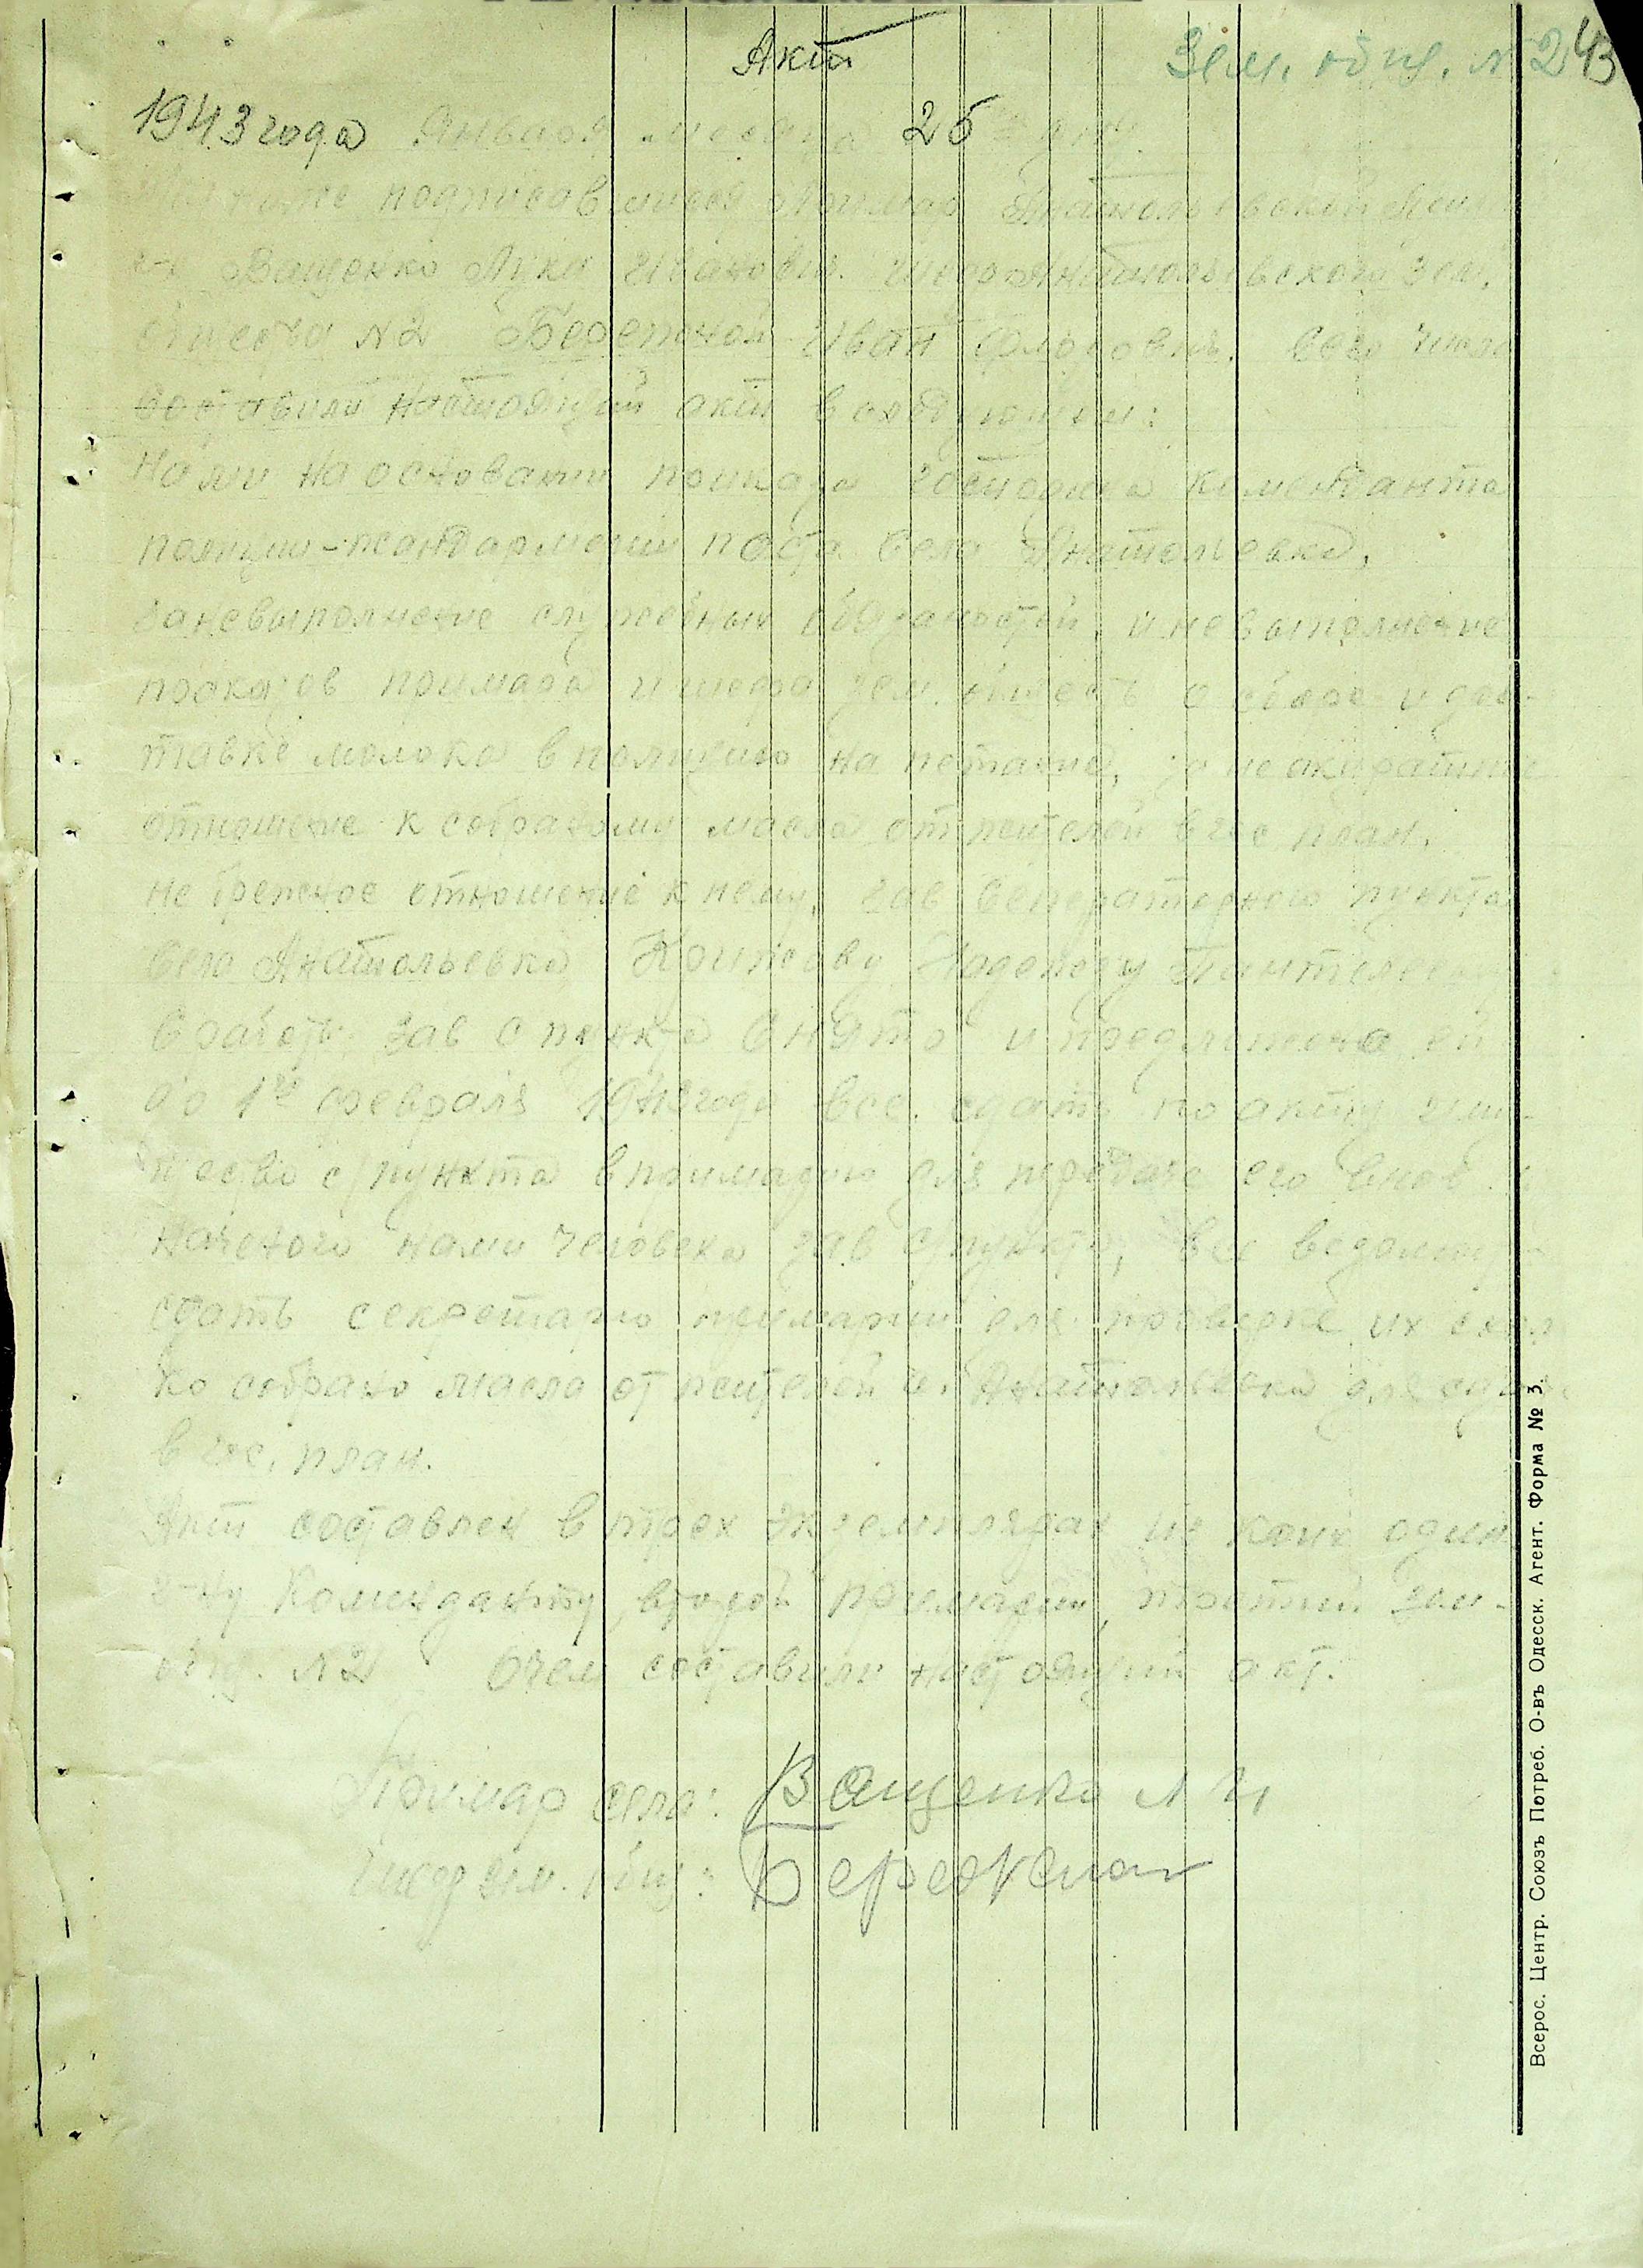 Акт
Зем. общ. №2 43
1943 года Января месяца 25 дня.
Мы ниже подписавшиеся Примар Анатольевской
г-н Ващенко Лука Иванович. шеф Анатольевского зем.
общества №2 Бережной Иван сего числа
составили настоящий акт в следующем:
Нами на основании приказа господина коменданта
полиции-жандармерии поста села Анатольевка,
за невыполнение служебных обязаностей, и невыполнение
приказов примара и шефа зем. обществ о сборе и дос-
тавке молока в полицию на питание, за не акуратное
отношение к собраному масла от жителей в гос план.
не брежное отношение к нему, зав сепараторного пункта
села Анатольевка Надежду Пантелеевну
с работы зав с пункта снято и предложено ей
до 1го февраля 1943 года все сдать по акту иму-
щество с/пункта в примарию для передаче его внов
наченого нами человека зав с/пункта, все ведомости
сдать секретарю примарии для проверке их сколь
ко собрано масла от жителей с. Анатольевка для сдачи
в гос. план.
Акт составлен в трех экземплярах из коих один
г-ну Коменданту, второй примарии, третий зем-
общ. №2 Очем составили настоящий акт.
Примар села: Ващенко Л И
Шеф зем. общ: Бережной
Всерос. Центр. Союзъ Потреб. О-въ Одесск. Агент. Форма № 3.